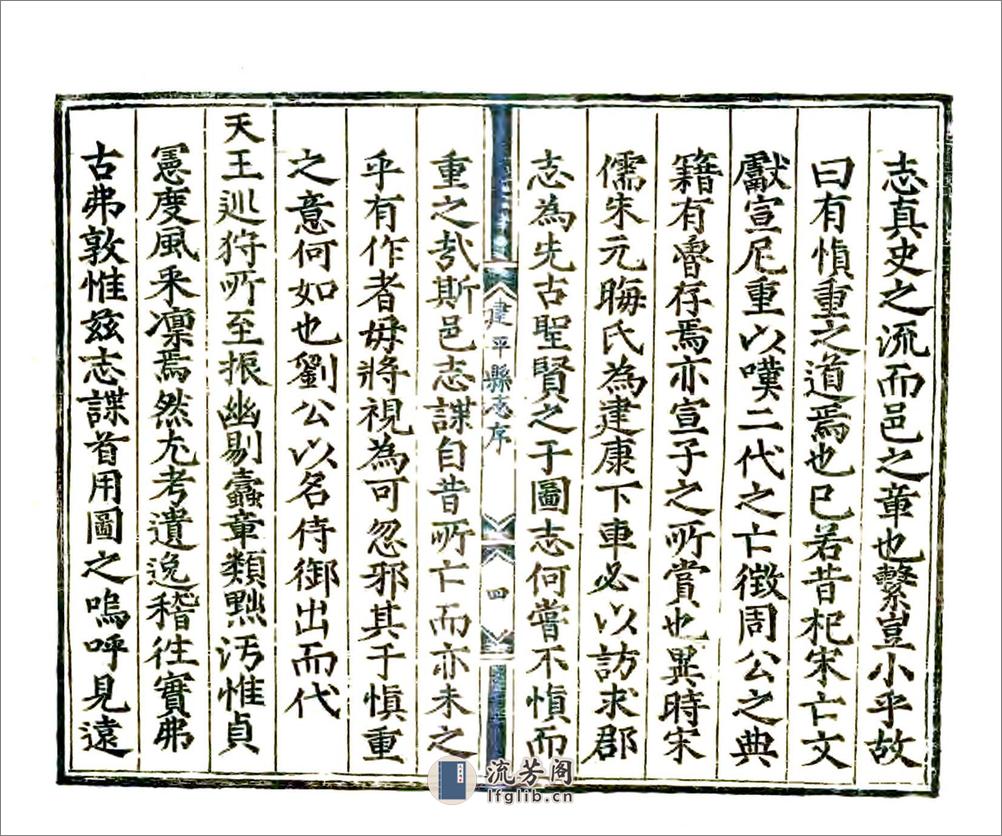 志真史之流而邑之章也繫豈小乎故
曰有慎重之道焉也已若昔杞宋亡文
獻宣尼重以嘆二代之亡徵周公之典
籍有魯存焉亦宣子之所賞也異時宋
儒朱元晦氏為建康下車必以訪求郡
志為先古聖賢之于圖志何嘗不慎而
建平縣志序
四
重之㢤斯邑志諜自昔所亡而亦未之
乎有作者毋將視為可忽邪其于慎重
之意何如也劉公以名侍御出而代
天王巡狩所至振幽剔蠹章類黙汚惟貞
憲度風采凛焉然尢考遺逸稽徃實弗
古弗敦惟兹志諜首用圖之嗚呼見遠
流芳阁
lfglib.cn